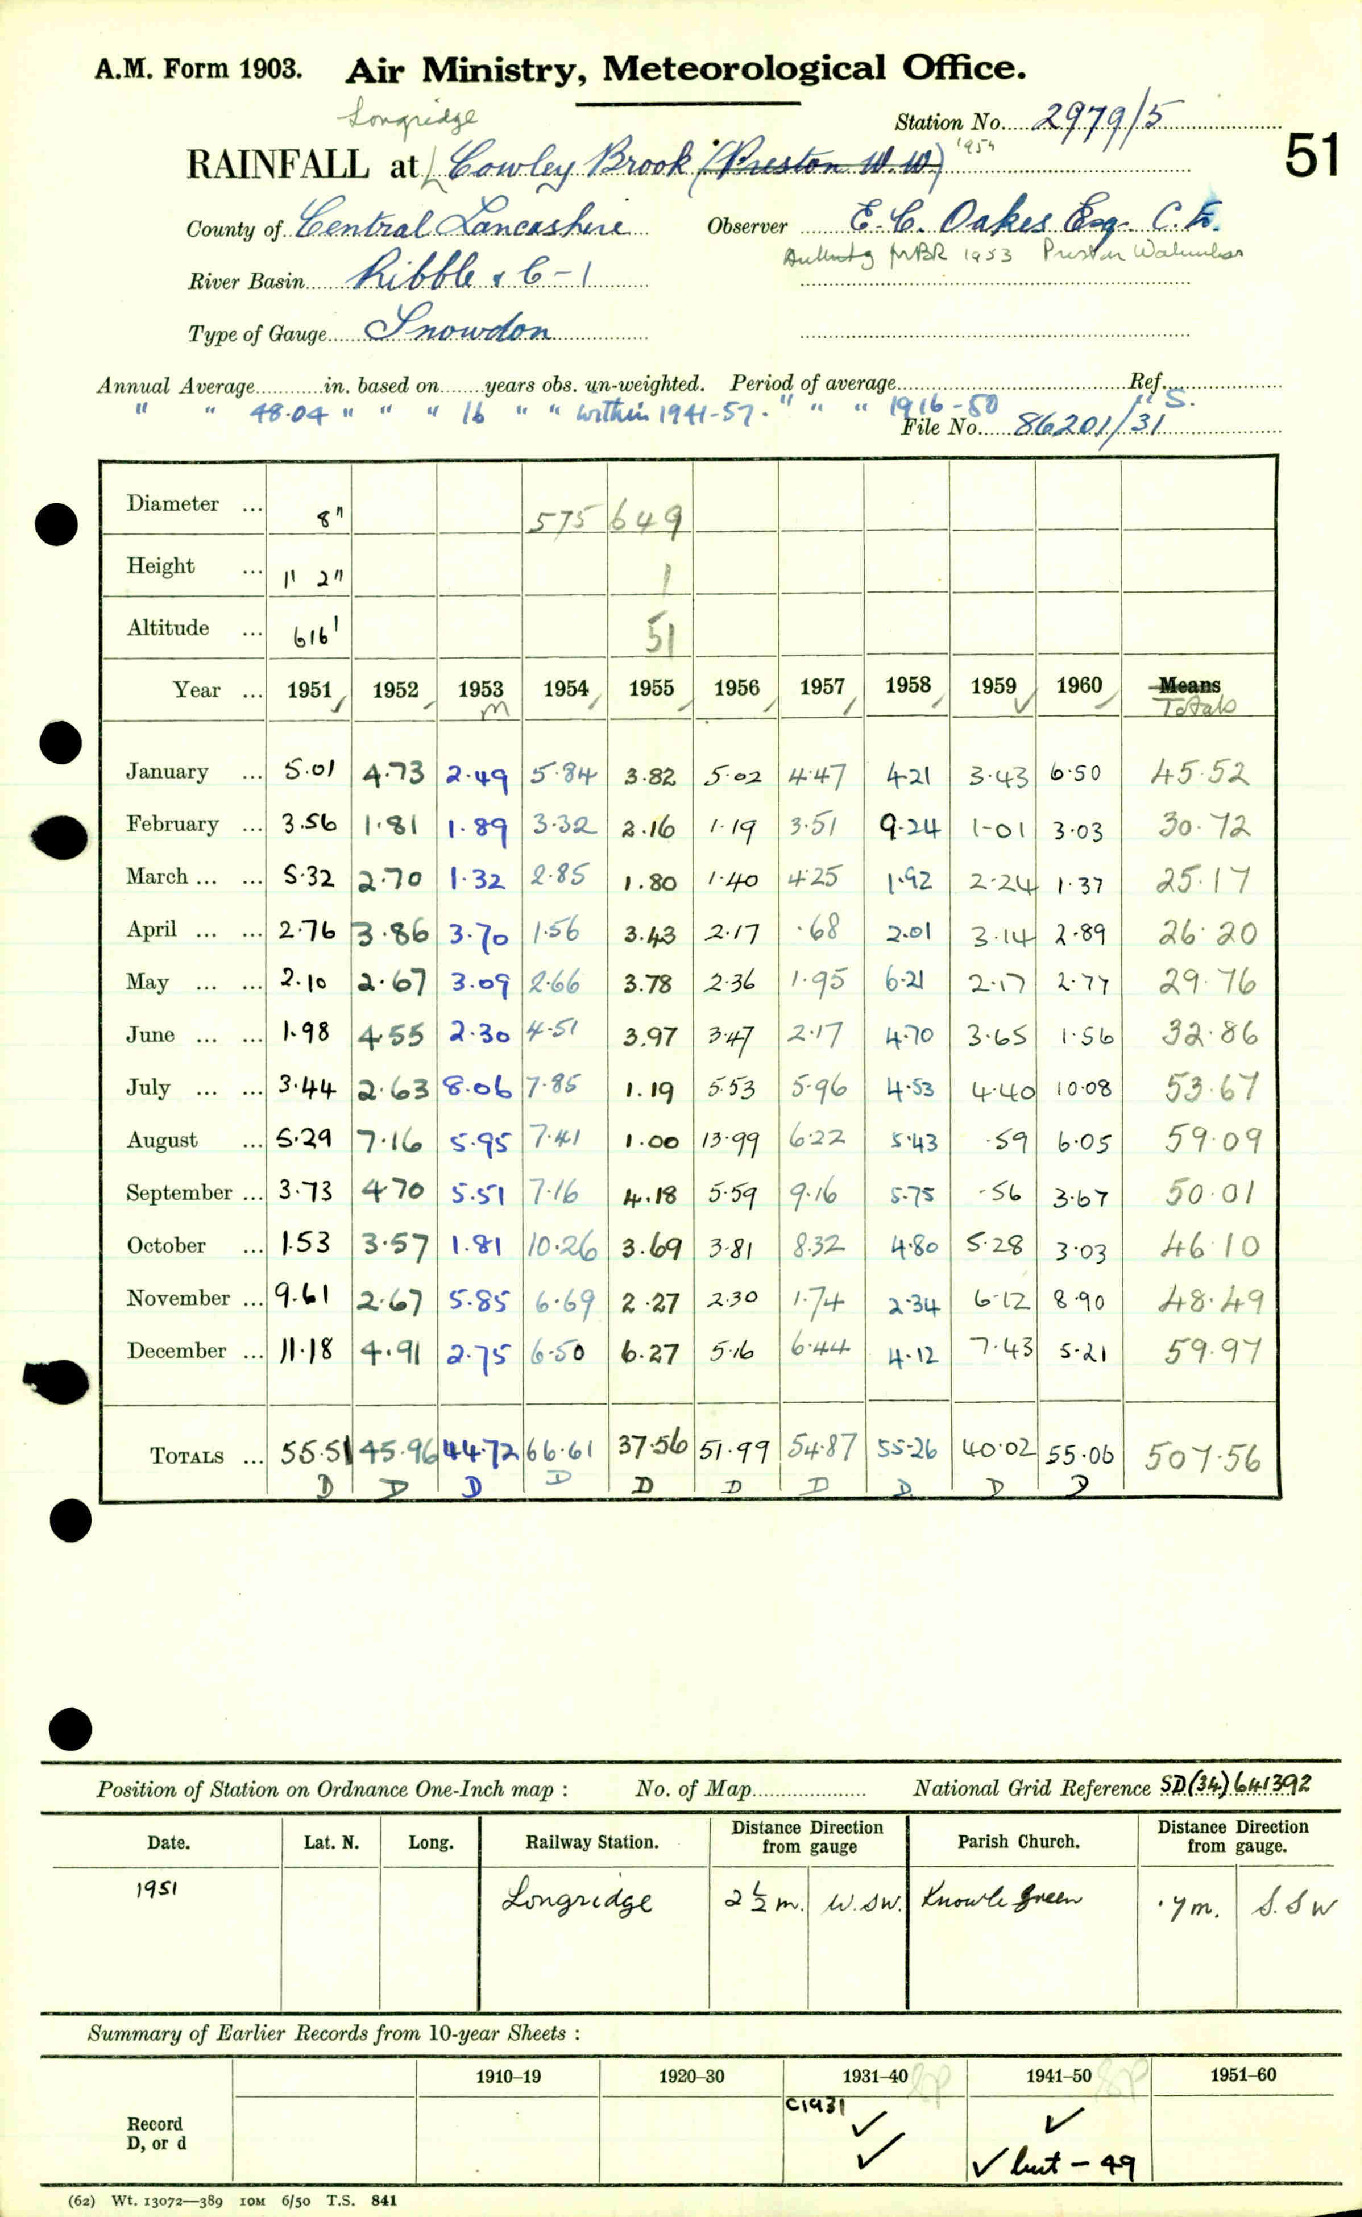 A.M. Form 1903. Air Ministry, Meteorological Office.
Longridge
Station No. 2979/5
RAINFALL at Cowley Brook (Preston W.W.) 1954
51
County of Central Lancashire Observer E. C. Oakes Esq. C.E.
MBR 1953 Preston
River Basin Ribble & C-1
Type of Gauge Snowdon
Annual Average in. based on years obs. un-weighted. Period of average Ref.
" " 48.04 " " " 16 " " within 1941-57. " " " 1916-50 " S.
File No. 86201/31
Diameter ... 8" 575 649
Height ... 1' 2" 1
Altitude ... 616' 51
Year ... 1951 1952 1953 1954 1955 1956 1957 1958 1959 1960 Means
m Totals
January ... 5.01 4.73 2.49 5.84 3.82 5.02 4.47 4.21 3.43 6.50 45.52
February ... 3.56 1.81 1.89 3.32 2.16 1.19 3.51 9.24 1.01 3.03 30.72
March ... ... 5.32 2.70 1.32 2.85 1.80 1.40 4.25 1.92 2.24 1.37 25.17
April ... ... 2.76 3.86 3.70 1.56 3.43 2.17 .68 2.01 3.14 2.89 26.20
May ... ... 2.10 2.67 3.09 2.66 3.78 2.36 1.95 6.21 2.17 2.77 29.76
June ... ... 1.98 4.55 2.30 4.51 3.97 3.47 2.17 4.70 3.65 1.56 32.86
July ... ... 3.44 2.63 8.06 7.85 1.19 5.53 5.96 4.53 4.40 10.08 53.67
August ... 5.29 7.16 5.95 7.41 1.00 13.99 6.22 5.43 .59 6.05 59.09
September ... 3.73 4.70 5.51 7.16 4.18 5.59 9.16 5.75 .56 3.67 50.01
October ... 1.53 3.57 1.81 10.26 3.69 3.81 8.32 4.80 5.28 3.03 46.10
November ... 9.61 2.67 5.85 6.69 2.27 2.30 1.74 2.34 6.12 8.90 48.49
December ... 11.18 4.91 2.75 6.50 6.27 5.16 6.44 4.12 7.43 5.21 59.97
TOTALS ... 55.51 45.96 44.72 66.61 37.56 51.99 54.87 55.26 40.02 55.06 507.56
D D D D D D D D D D
Position of Station on Ordnance One-Inch map : No. of Map National Grid Reference SD(34)641392
Date. Lat. N. Long. Railway Station. Distance Direction from gauge Parish Church. Distance Direction from gauge.
1951 Longridge 2½ m. W.SW. Knowle Green .7 m. S.S W
Summary of Earlier Records from 10-year Sheets :
1910–19 1920–30 1931–40 1941–50 1951–60
Record D, or d
C1931 ✓ ✓
✓ ✓ but - 49
(62) Wt. 13072—389 10M 6/50 T.S. 841